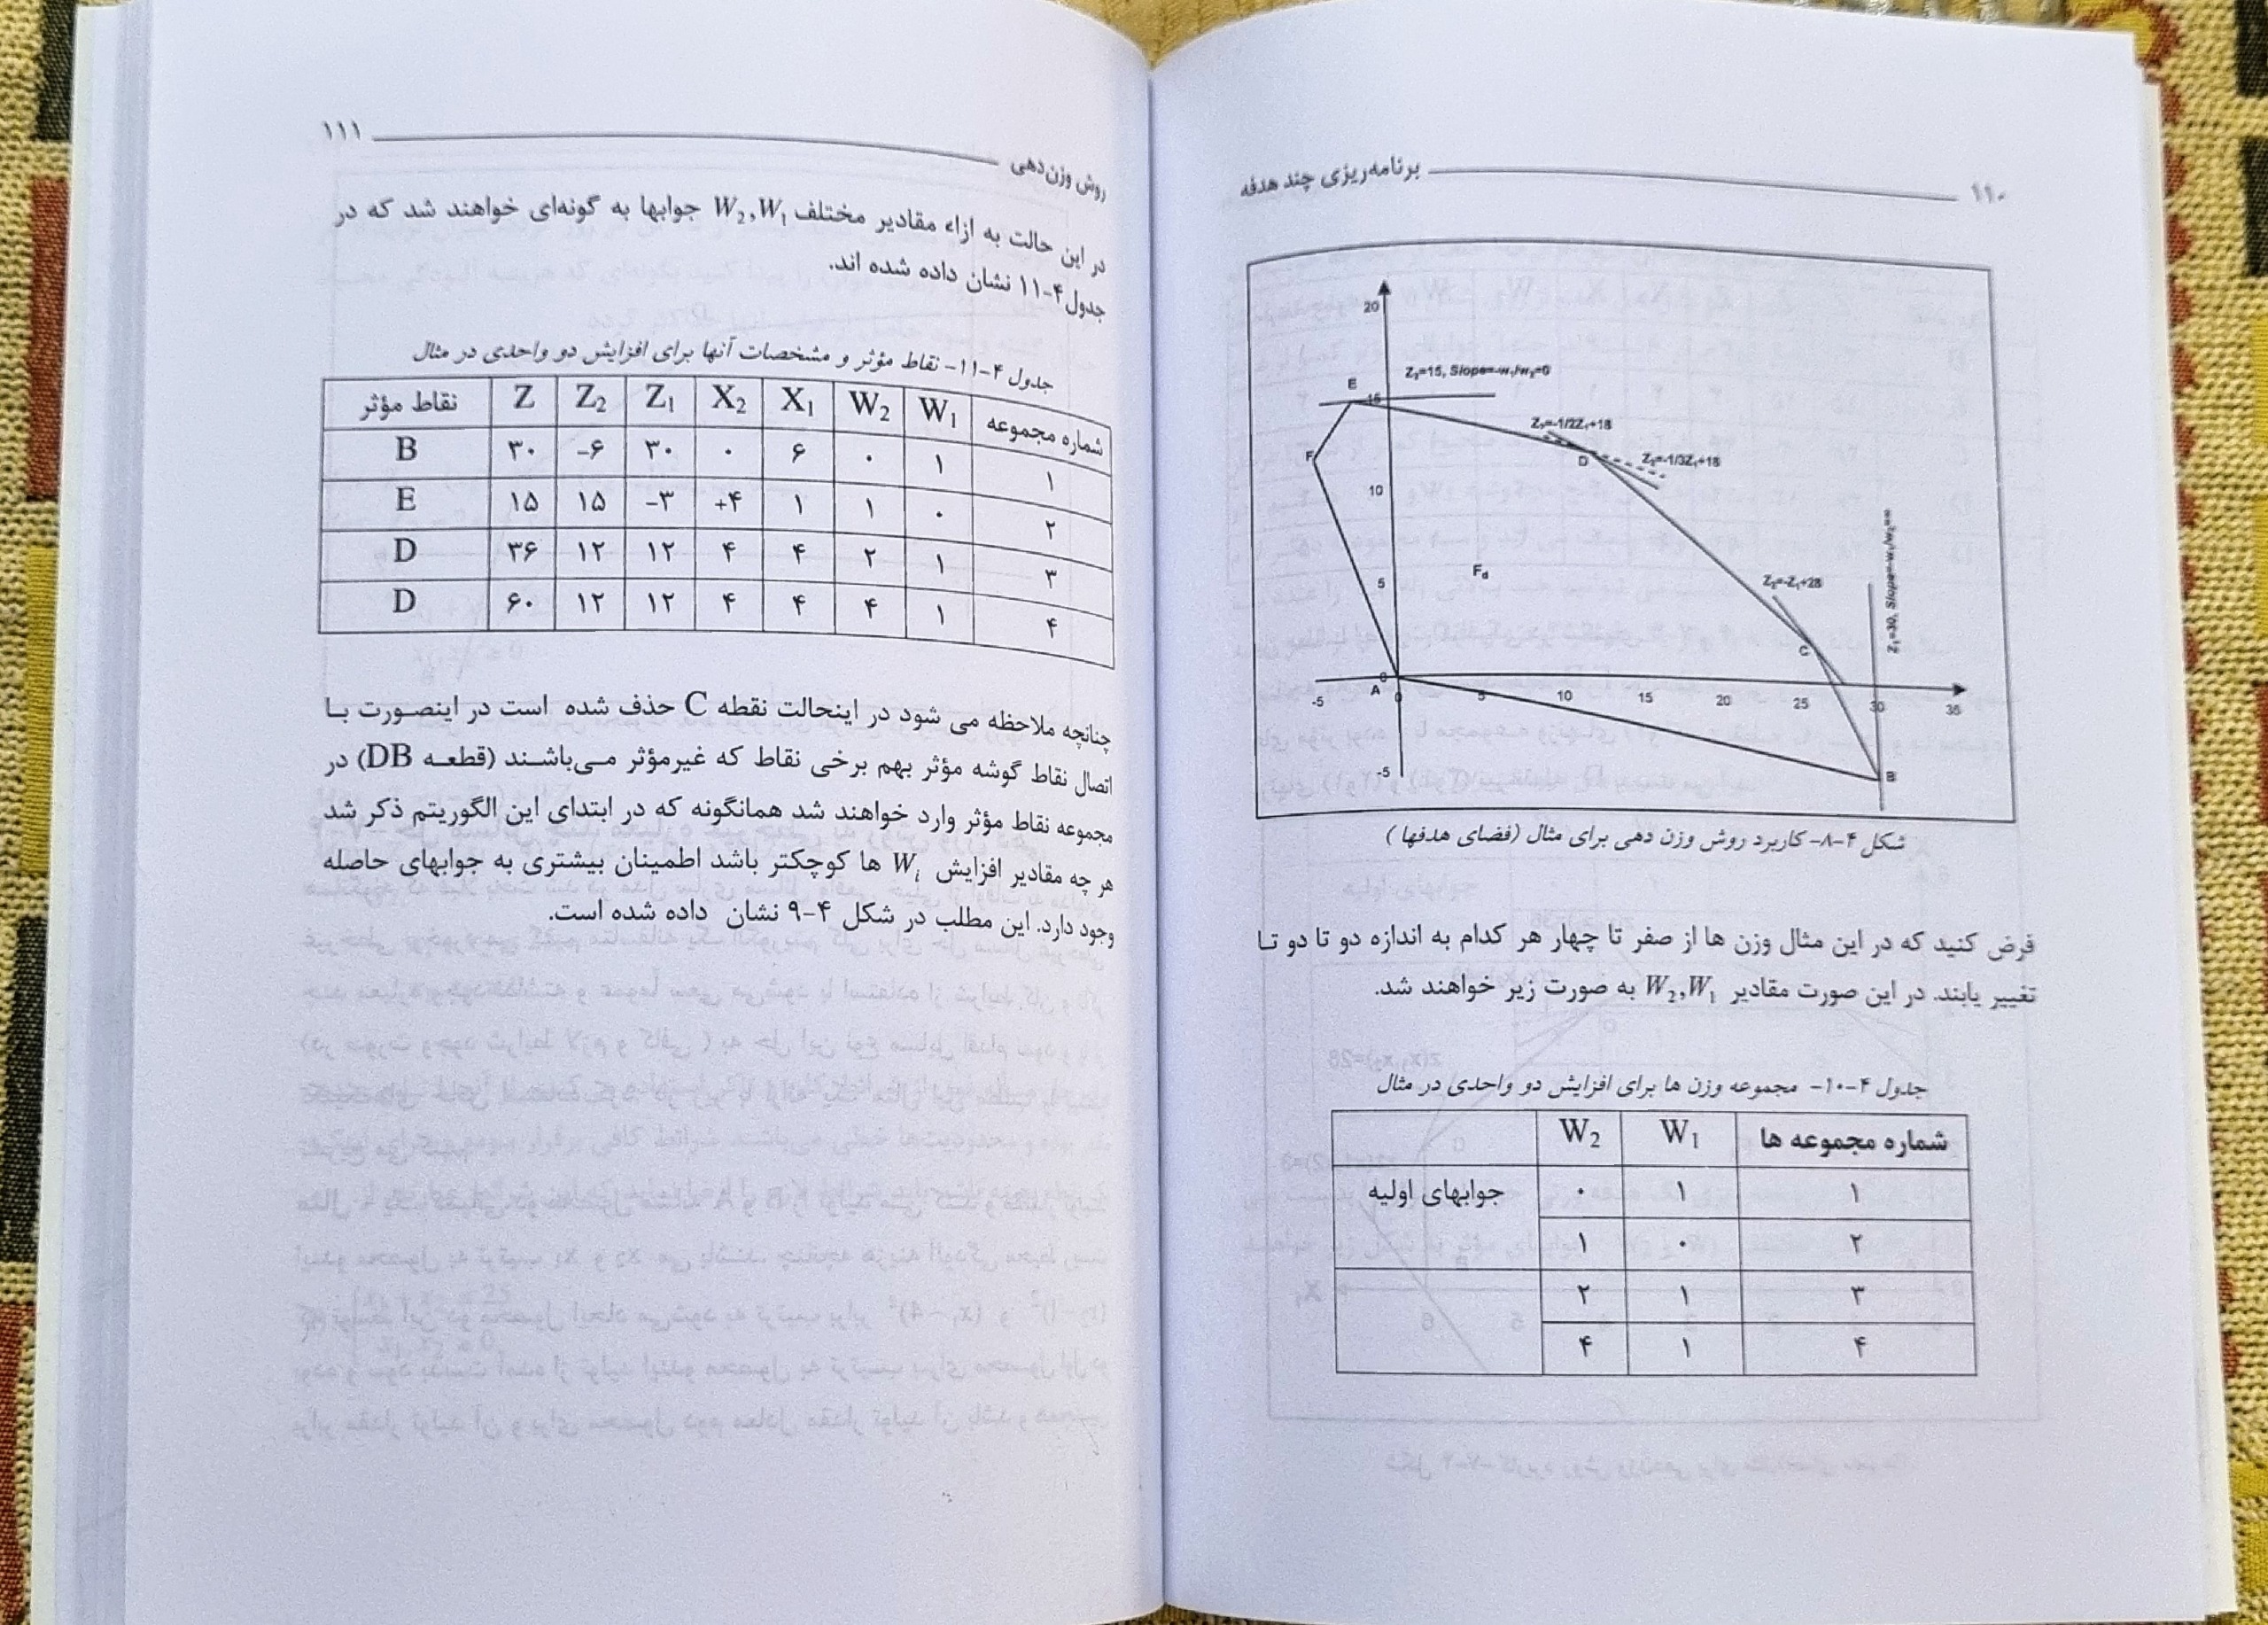 ۱۱۰ برنامه‌ریزی چند هدفه
20
15
10
5
0
-5
-5 0 5 10 15 20 25 30 35
E
F
D
C
B
A
F_d
Z₂=15, Slope=-w₁/w₂=0
Z₂=-1/2Z₁+18
Z₂=-1/3Z₁+18
Z₂=-Z₁+28
Z₁=30, Slope=-w₁/w₂=∞
شکل ۴-۸- کاربرد روش وزن دهی برای مثال (فضای هدفها )
فرض کنید که در این مثال وزن ها از صفر تا چهار هر کدام به اندازه دو تا دو تـا
تغییر یابند. در این صورت مقادیر W₂,W₁ به صورت زیر خواهند شد.
جدول ۴-۱۰- مجموعه وزن ها برای افزایش دو واحدی در مثال
شماره مجموعه ها W₁ W₂
۱ ۱ ۰ جوابهای اولیه
۲ ۰ ۱
۳ ۱ ۲
۴ ۱ ۴
روش وزن‌دهی ۱۱۱
در این حالت به ازاء مقادیر مختلف W₂,W₁ جوابها به گونه‌ای خواهند شد که در
جدول۴-۱۱ نشان داده شده اند.
جدول ۴-۱۱- نقاط مؤثر و مشخصات آنها برای افزایش دو واحدی در مثال
شماره مجموعه W₁ W₂ X₁ X₂ Z₁ Z₂ Z نقاط مؤثر
۱ ۱ ۰ ۶ ۰ ۳۰ -۶ ۳۰ B
۲ ۰ ۱ ۱ +۴ -۳ ۱۵ ۱۵ E
۳ ۱ ۲ ۴ ۴ ۱۲ ۱۲ ۳۶ D
۴ ۱ ۴ ۴ ۴ ۱۲ ۱۲ ۶۰ D
چنانچه ملاحظه می شود در اینحالت نقطه C حذف شده است در اینصـورت بـا
اتصال نقاط گوشه مؤثر بهم برخی نقاط که غیرمؤثر مـی‌باشـند (قطعـه DB) در
مجموعه نقاط مؤثر وارد خواهند شد همانگونه که در ابتدای این الگوریتم ذکر شد
هر چه مقادیر افزایش Wᵢ ها کوچکتر باشد اطمینان بیشتری به جوابهای حاصله
وجود دارد. این مطلب در شکل ۴-۹ نشان داده شده است.